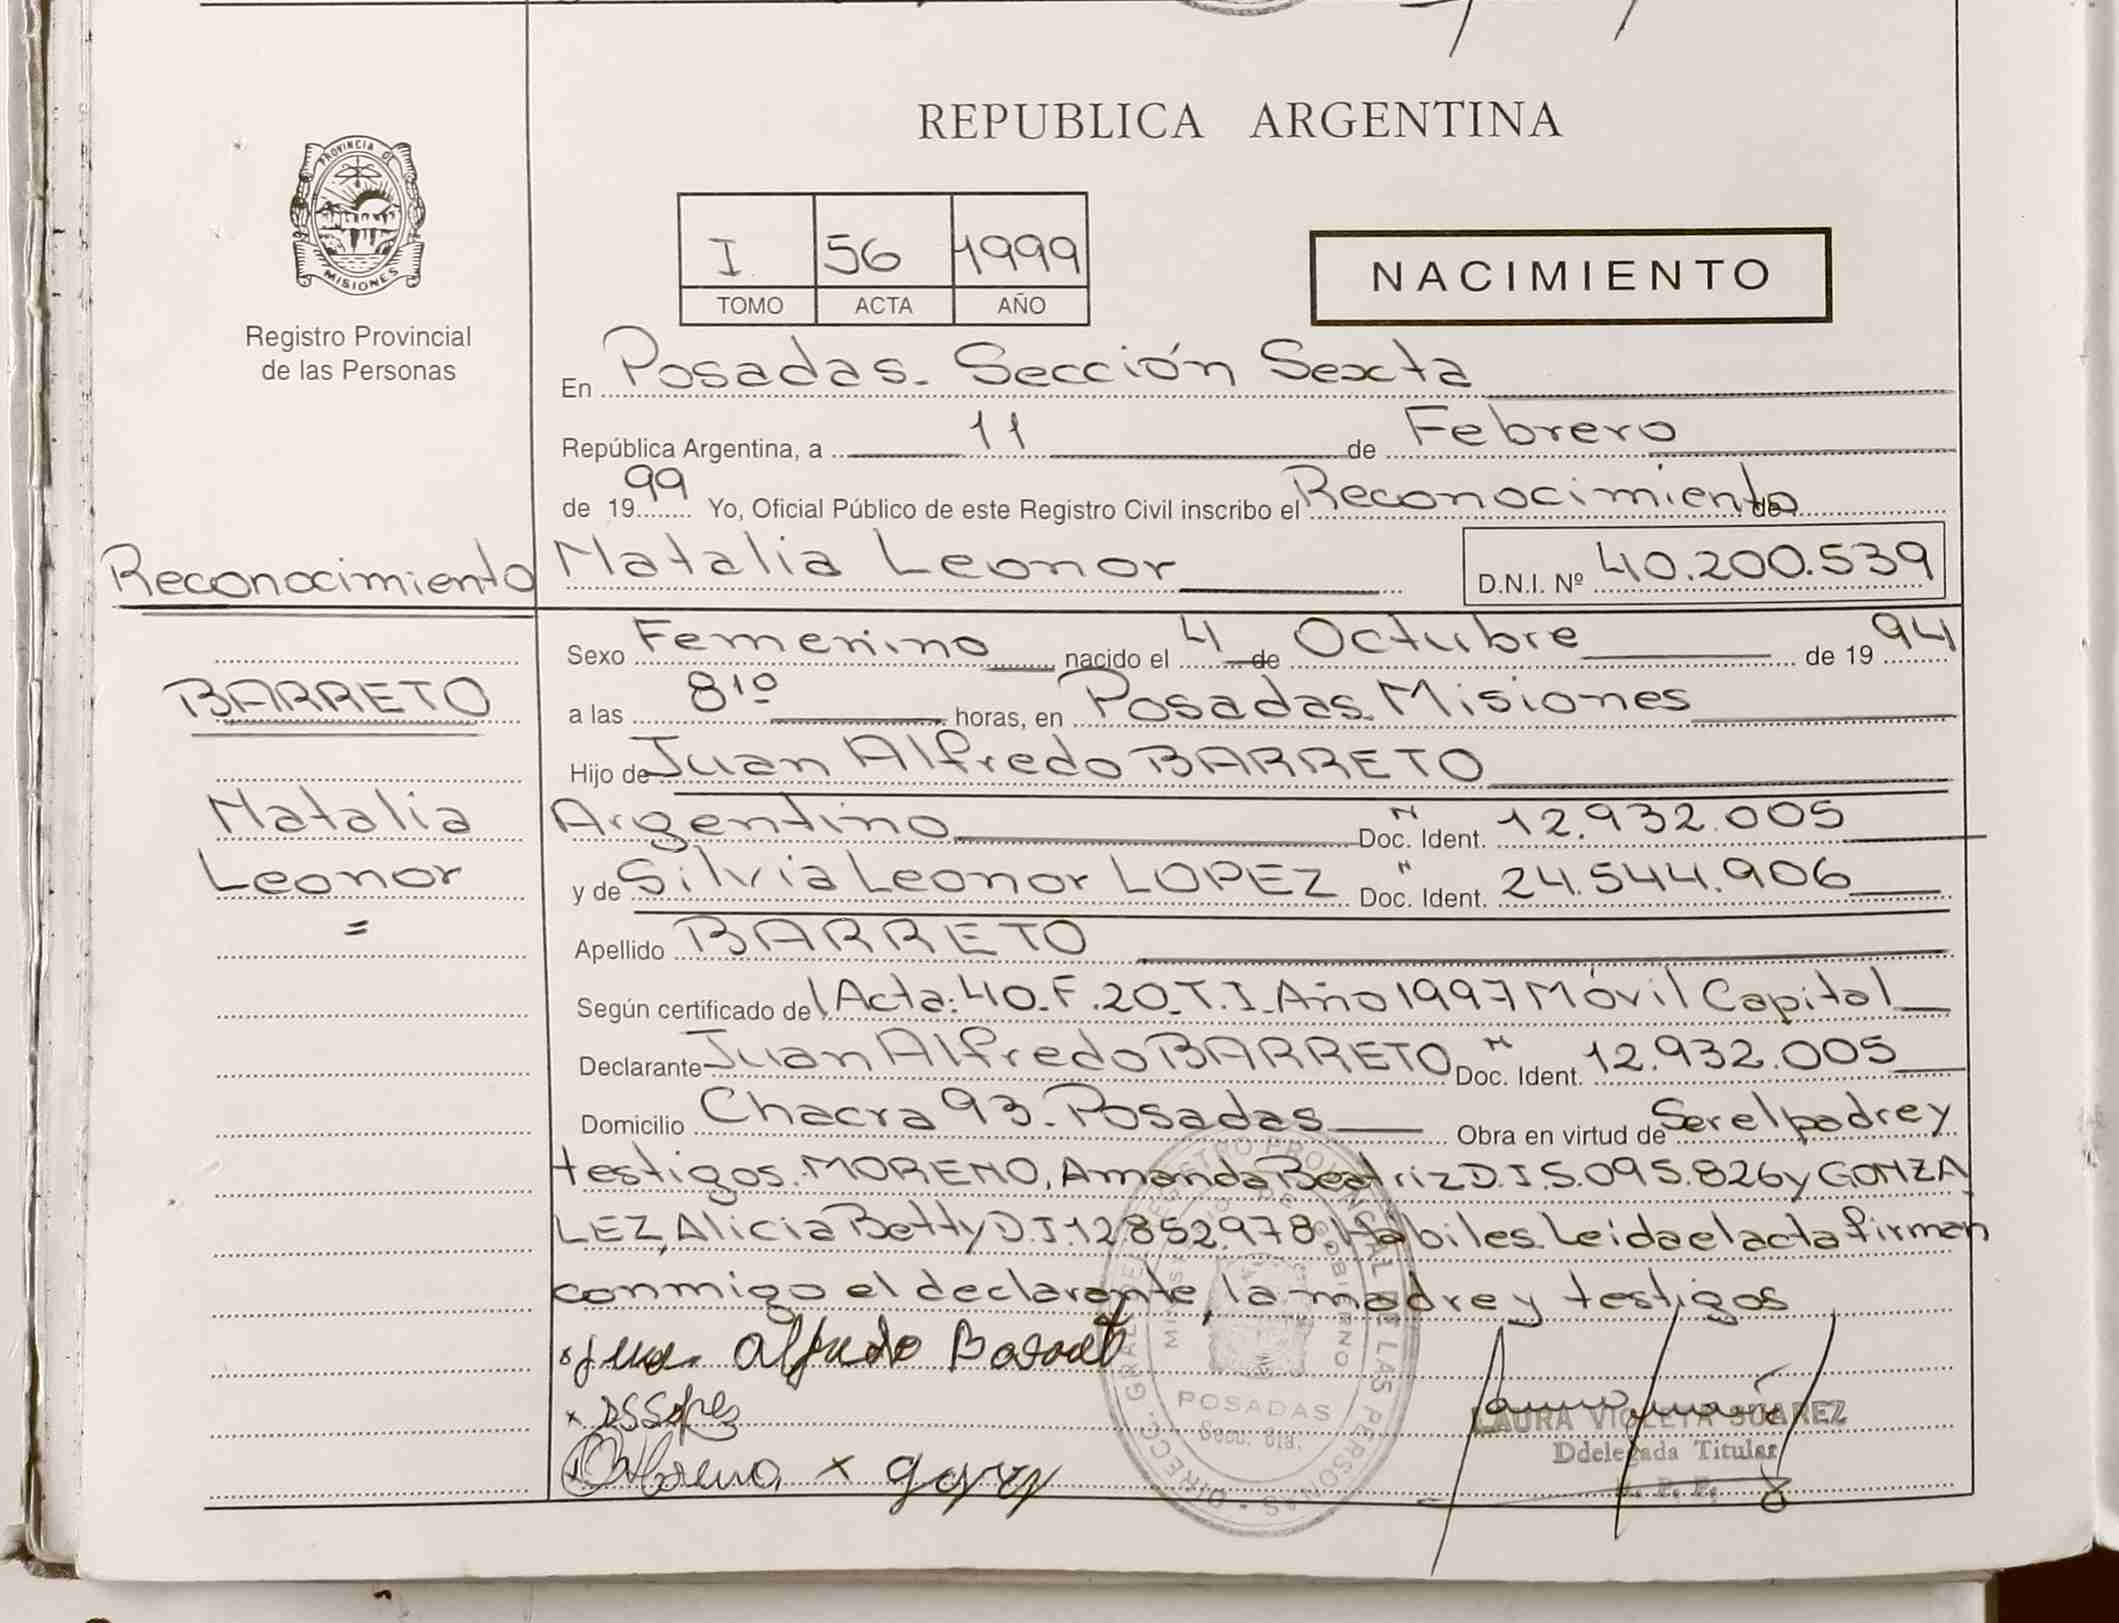 REPUBLICA ARGENTINA
PROVINCIA DE
MISIONES
Registro Provincial
de las Personas
I 56 1999
TOMO ACTA AÑO
NACIMIENTO
En Posadas. Sección Sexta
República Argentina, a 11 de Febrero
de 1999 Yo, Oficial Público de este Registro Civil inscribo el Reconocimiento de
Natalia Leonor D.N.I. Nº 40.200.539
Reconocimiento
BARRETO
Natalia
Leonor
=
Sexo Femenino nacido el 4 de Octubre de 1994
a las 8¹⁰ horas, en Posadas. Misiones
Hijo de Juan Alfredo BARRETO
Argentino Doc. Ident. N 12.932.005
y de Silvia Leonor LOPEZ Doc. Ident. " 24.544.906
Apellido BARRETO
Según certificado de l Acta: 40_F.20_T.I_Año 1997 Móvil Capital
Declarante Juan Alfredo BARRETO Doc. Ident. N 12.932.005
Domicilio Chacra 93. Posadas Obra en virtud de Ser el padre y
testigos. MORENO, Amanda Beatriz D.I. 5.095.826 y GONZA
LEZ, Alicia Betty D.I. 12852.978. Hábiles. Leida el acta firman
conmigo el declarante, la madre y testigos
Alfredo Barreto
Moreno
DIRECC. GRAL. DEL REGISTRO PROVINCIAL DE LAS PERSONAS
POSADAS
Secc. 6ta.
LAURA VIOLETA SUAREZ
Ddelegada Titular